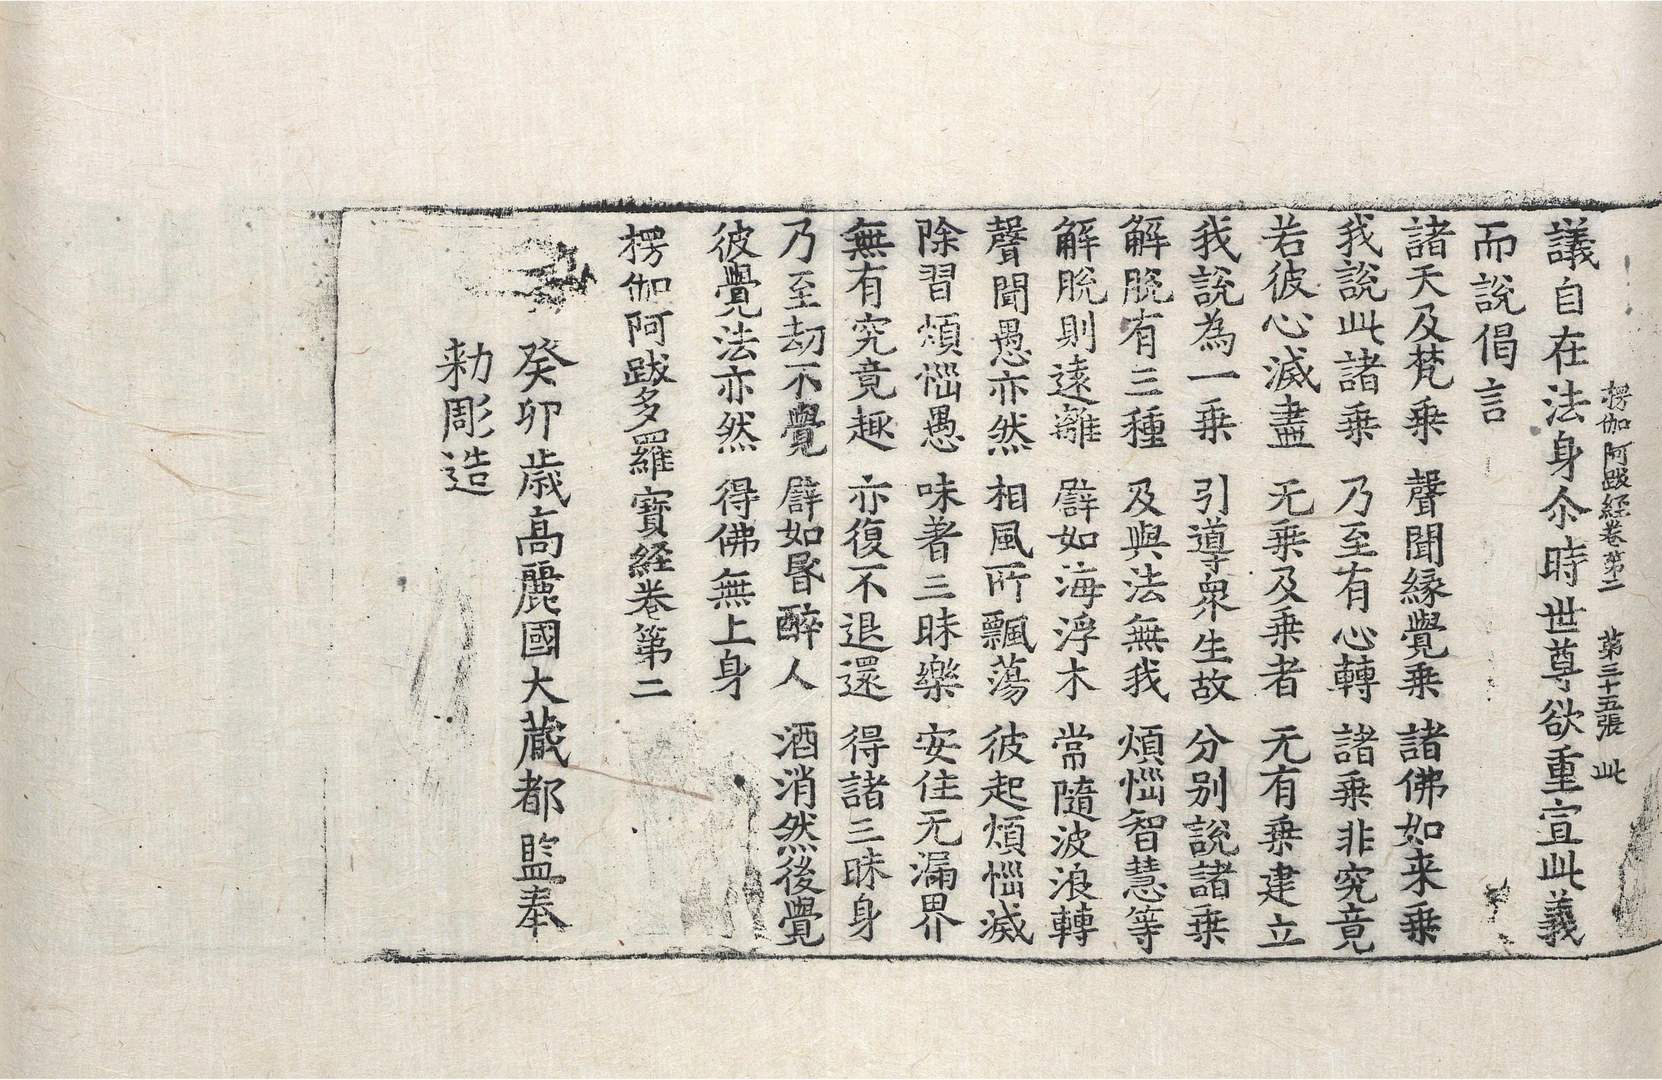 楞伽阿跋経卷第二　第三十五張　此
議自在法身尒時世尊欲重宣此義
而說偈言
諸天及梵乗　聲聞縁覺乗　諸佛如来乗
我說此諸乗　乃至有心轉　諸乗非究竟
若彼心滅盡　无乗及乗者　无有乗建立
我說為一乗　引導衆生故　分别說諸乗
解脫有三種　及與法無我　煩惱智慧等
解脫則遠離　譬如海浮木　常隨波浪轉
聲聞愚亦然　相風所飄蕩　彼起煩惱滅
除習煩惱愚　味著三昧樂　安住无漏界
無有究竟趣　亦復不退還　得諸三昧身
乃至劫不覺　譬如昬醉人　酒消然後覺
彼覺法亦然　得佛無上身
楞伽阿跋多羅寶経卷第二
癸卯歳高麗國大藏都監奉
勑彫造